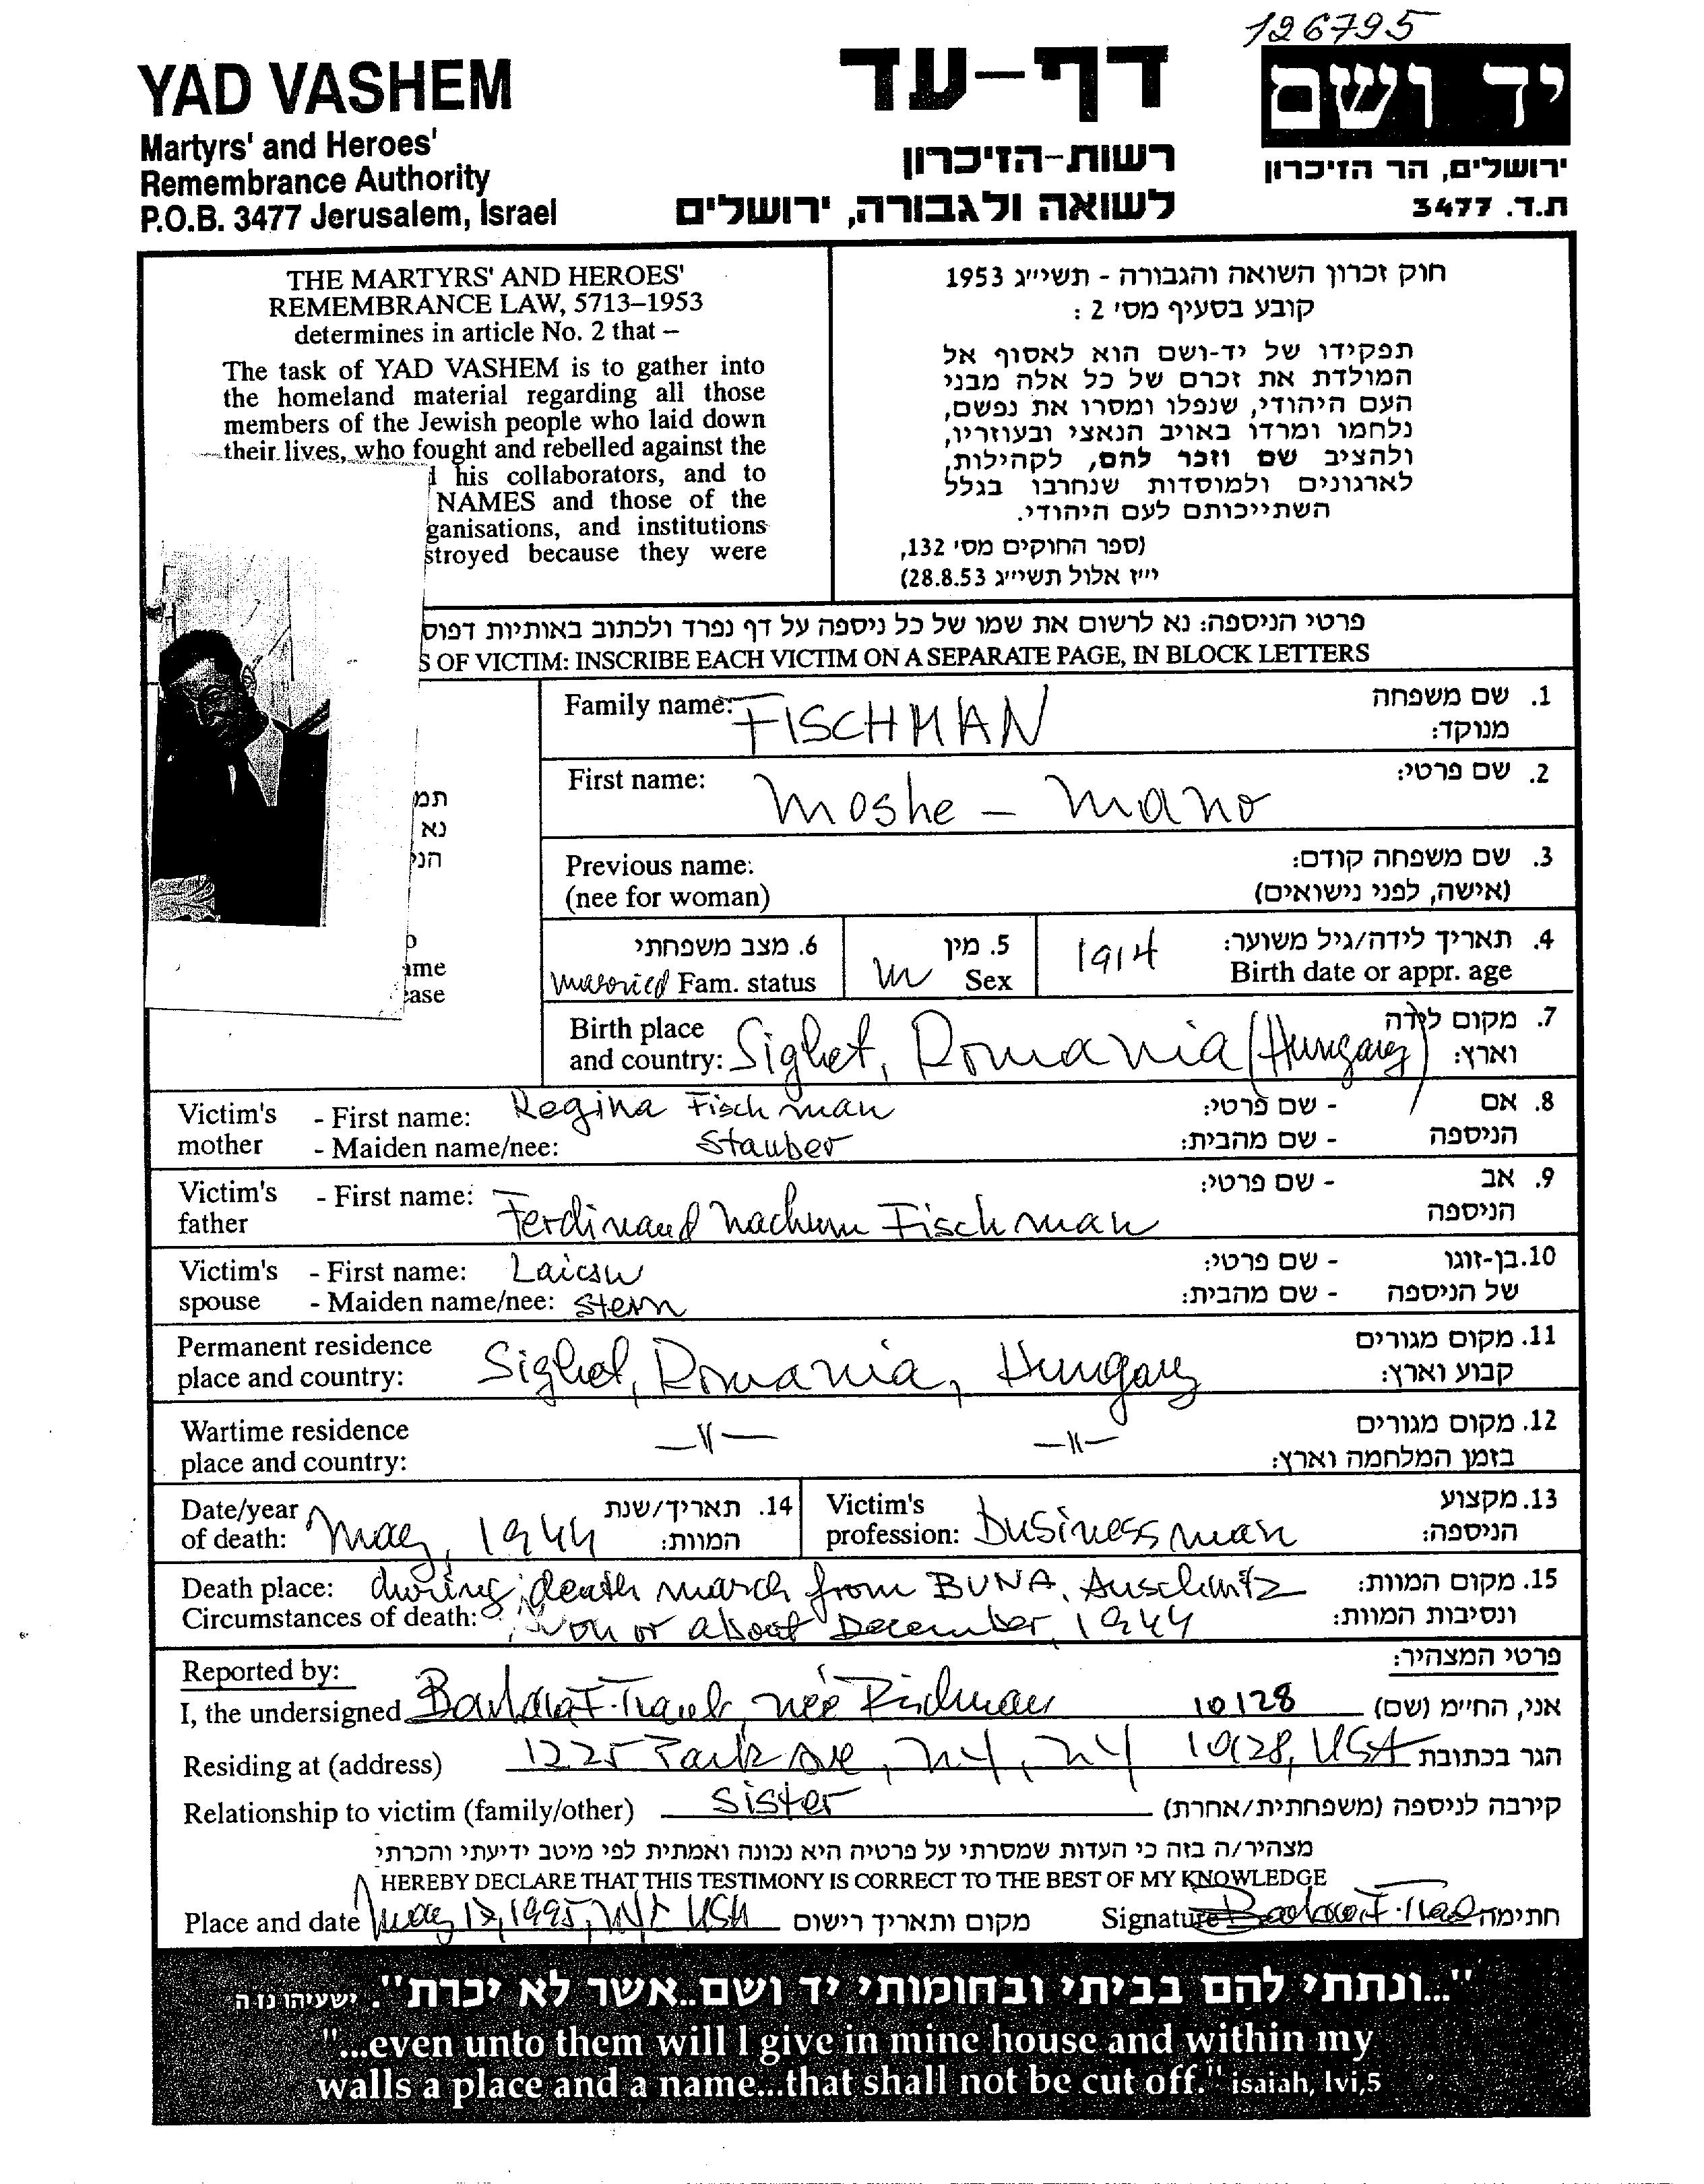 126795
YAD VASHEM
Martyrs' and Heroes'
Remembrance Authority
P.O.B. 3477 Jerusalem, Israel
דף-עד
רשות-הזיכרון
לשואה ולגבורה, ירושלים
יד ושם
ירושלים, הר הזיכרון
ת.ד. 3477
THE MARTYRS' AND HEROES'
REMEMBRANCE LAW, 5713–1953
determines in article No. 2 that –
The task of YAD VASHEM is to gather into
the homeland material regarding all those
members of the Jewish people who laid down
their lives, who fought and rebelled against the
his collaborators, and to
NAMES and those of the
ganisations, and institutions
stroyed because they were
חוק זכרון השואה והגבורה - תשי״ג 1953
קובע בסעיף מס׳ 2 :
תפקידו של יד-ושם הוא לאסוף אל
המולדת את זכרם של כל אלה מבני
העם היהודי, שנפלו ומסרו את נפשם,
נלחמו ומרדו באויב הנאצי ובעוזריו,
ולהציב שם וזכר להם, לקהילות,
לארגונים ולמוסדות שנחרבו בגלל
השתייכותם לעם היהודי.
(ספר החוקים מס׳ 132,
י״ז אלול תשי״ג 28.8.53)
פרטי הניספה: נא לרשום את שמו של כל ניספה על דף נפרד ולכתוב באותיות דפוס
S OF VICTIM: INSCRIBE EACH VICTIM ON A SEPARATE PAGE, IN BLOCK LETTERS
תמ
נא
הני
ame
ease
Family name: FISCHMAN 1. שם משפחה
מנוקד:
First name: Moshe – Mano 2. שם פרטי:
Previous name: 3. שם משפחה קודם:
(nee for woman) (אישה, לפני נישואים)
6. מצב משפחתי 5. מין 1914 4. תאריך לידה/גיל משוער:
married Fam. status M Sex Birth date or appr. age
Birth place 7. מקום לידה
and country: Sighet, Romania (Hungary) וארץ:
Victim's - First name: Regina Fischman - שם פרטי: 8. אם
mother - Maiden name/nee: Stauber - שם מהבית: הניספה
Victim's - First name: - שם פרטי: 9. אב
father Ferdinand Nachum Fischman הניספה
Victim's - First name: - שם פרטי: 10. בן-זוגו
spouse - Maiden name/nee: Stern - שם מהבית: של הניספה
Permanent residence 11. מקום מגורים
place and country: Sighet, Romania, Hungary קבוע וארץ:
Wartime residence —"— —"— 12. מקום מגורים
place and country: בזמן המלחמה וארץ:
Date/year 14. תאריך/שנת Victim's 13. מקצוע
of death: May, 1944 המוות: profession: businessman הניספה:
Death place: during death march from BUNA, Auschwitz 15. מקום המוות:
Circumstances of death: on or about December, 1944 ונסיבות המוות:
Reported by: פרטי המצהיר:
I, the undersigned Barbara F. Traub neé Fischman 10128 אני, החי״מ (שם)
Residing at (address) 1225 Park Ave, NY, NY 10128, USA הגר בכתובת
Relationship to victim (family/other) sister קירבה לניספה (משפחתית/אחרת)
מצהיר/ה בזה כי העדות שמסרתי על פרטיה היא נכונה ואמתית לפי מיטב ידיעתי והכרתי
I HEREBY DECLARE THAT THIS TESTIMONY IS CORRECT TO THE BEST OF MY KNOWLEDGE
Place and date May 1995, NY USA מקום ותאריך רישום Signature Barbara F. Traub חתימה
"...ונתתי להם בביתי ובחומותי יד ושם..אשר לא יכרת". ישעיהו נו ה
"...even unto them will I give in mine house and within my
walls a place and a name...that shall not be cut off." isaiah, lvi,5